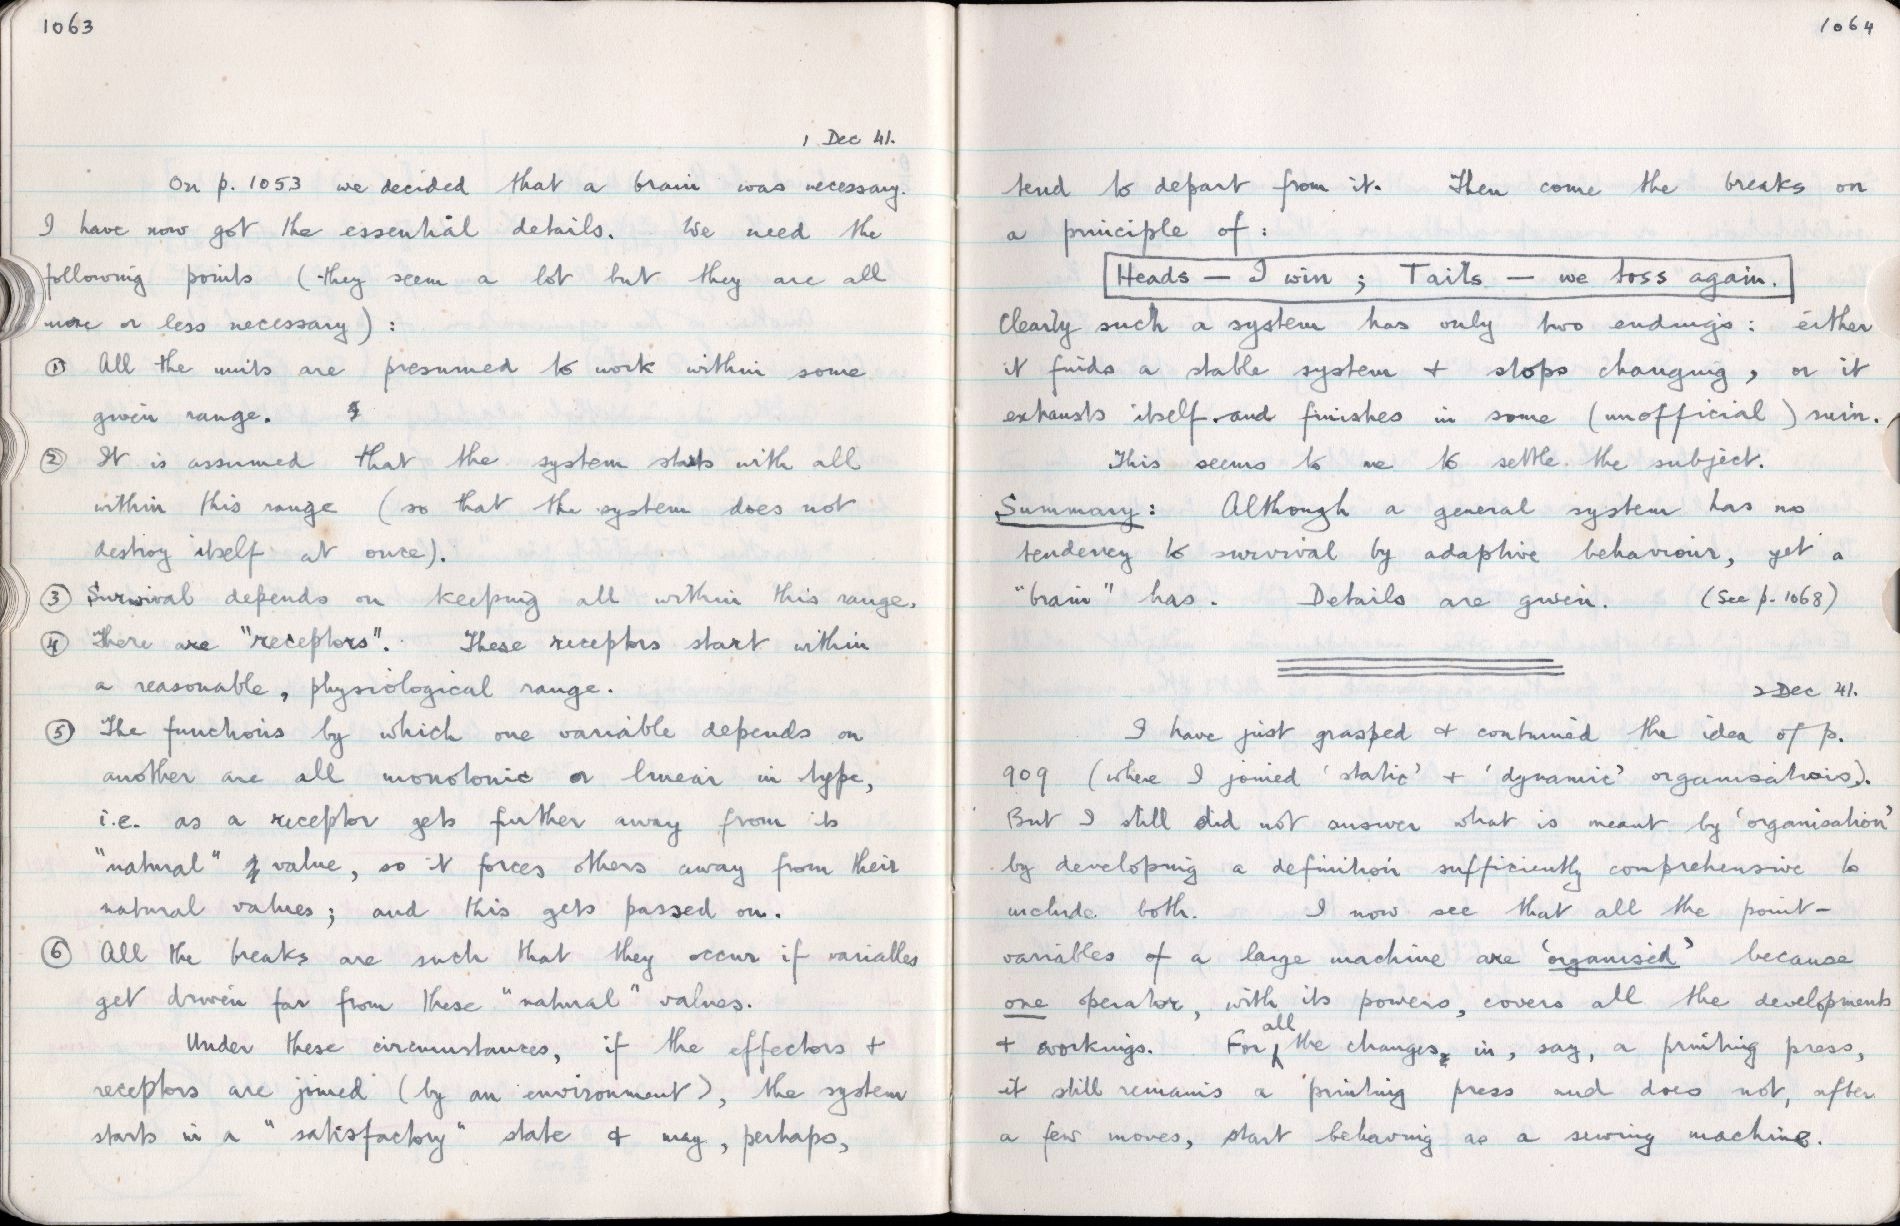 1063
1 Dec 41.
On p. 1053 we decided that a brain was necessary.
I have now got the essential details. We need the
following points (they seem a lot but they are all
more or less necessary) :
① All the units are presumed to work within some
given range.
② It is assumed that the system starts with all
within this range (so that the system does not
destroy itself at once).
③ Survival depends on keeping all within this range.
④ There are "receptors". These receptors start within
a reasonable, physiological range.
⑤ The functions by which one variable depends on
another are all monotonic or linear in type,
i.e. as a receptor gets further away from its
"natural" value, so it forces others away from their
natural values; and this gets passed on.
⑥ All the breaks are such that they occur if variables
get driven far from these "natural" values.
Under these circumstances, if the effectors +
receptors are joined (by an environment), the system
starts in a "satisfactory" state & may, perhaps,
1064
tend to depart from it. Then come the breaks on
a principle of :
Heads — I win ; Tails — we toss again.
Clearly such a system has only two endings: either
it finds a stable system + stops changing, or it
exhausts itself and finishes in some (unofficial) ruin.
This seems to me to settle the subject.
Summary: Although a general system has no
tendency to survival by adaptive behaviour, yet a
"brain" has. Details are given. (See p. 1068)
2 Dec 41.
I have just grasped & continued the idea of p.
909 (where I joined 'static' + 'dynamic' organisations).
But I still did not answer what is meant by 'organisation'
by developing a definition sufficiently comprehensive to
include both. I now see that all the point-
variables of a large machine are 'organised' because
one operator, with its powers, covers all the developments
+ workings. For all the changes in, say, a printing press,
it still remains a printing press and does not, after
a few moves, start behaving as a sewing machine.